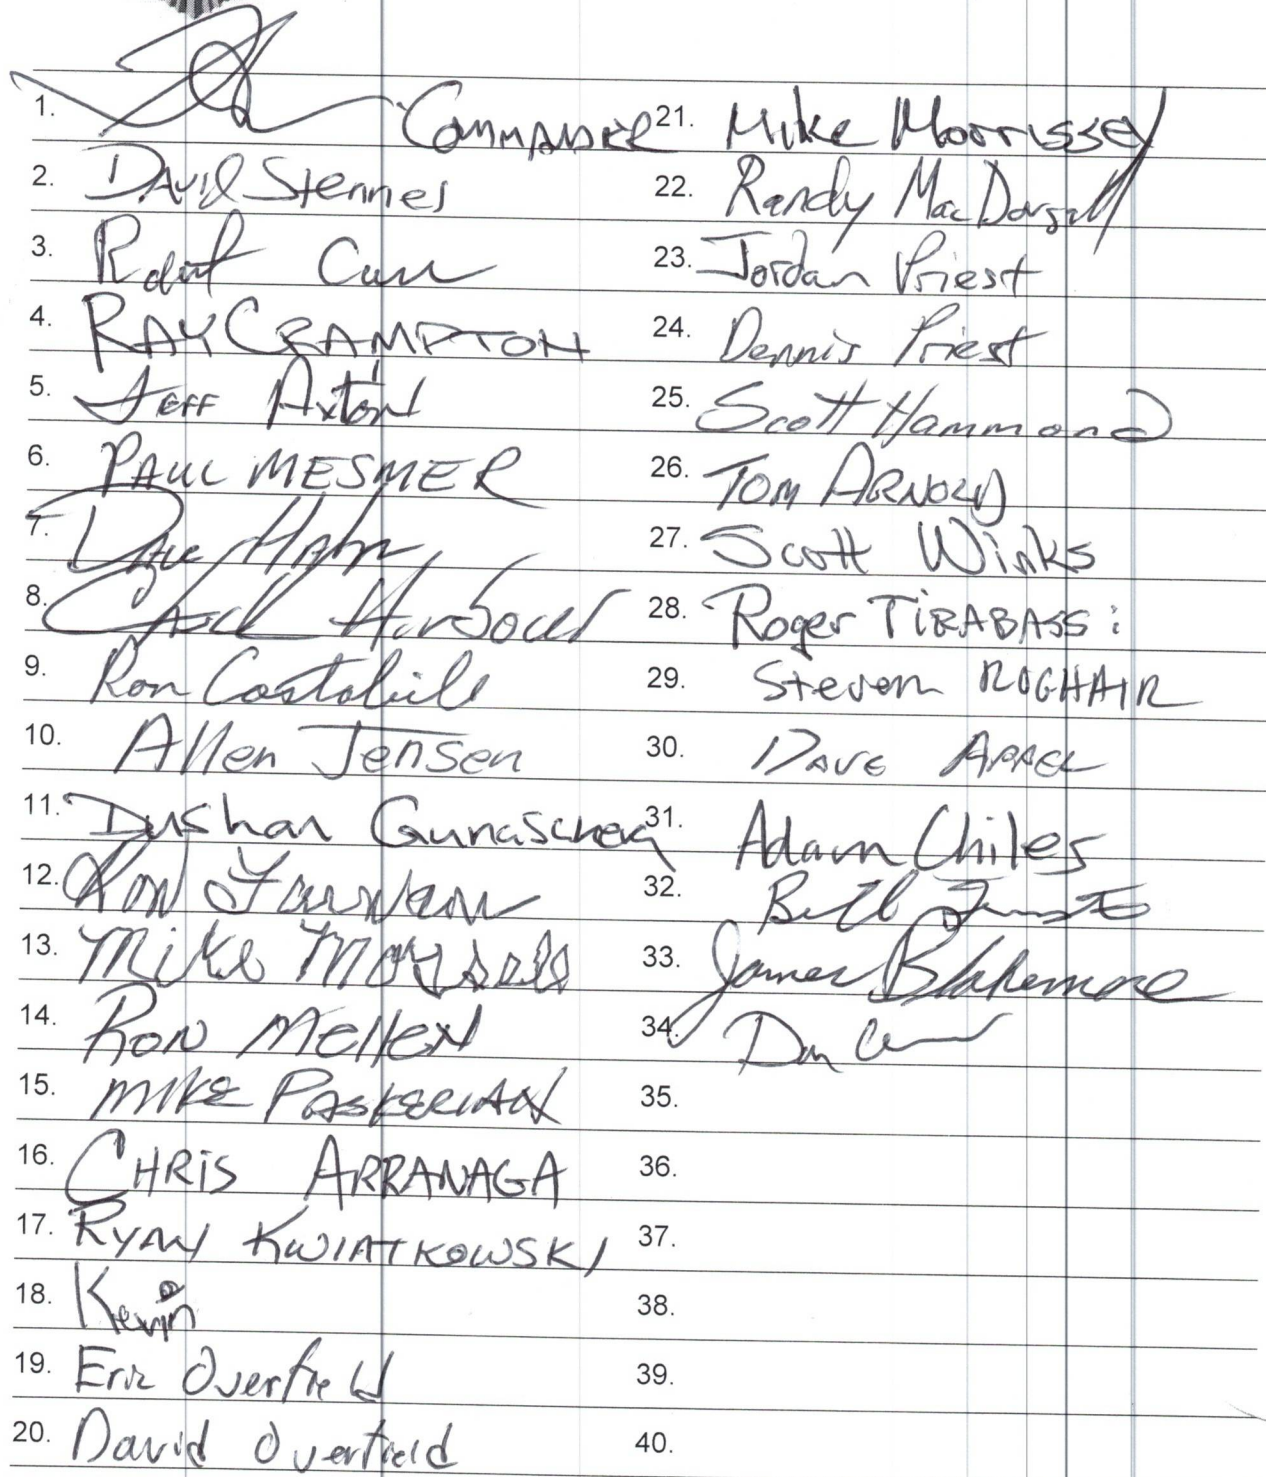 1. Commander
2. David Stennes
3. Robert
4. RAY CRAMPTON
5. Jeff Axton
6. PAUL MESMER
7. Dave Hahn
8. Chuck Harbour
9. Ron Costabile
10. Allen Jensen
11. Dushan
12. Ron
13. Mike
14. Ron Mellen
15. MIKE
16. CHRIS ARRANAGA
17. RYAN KWIATKOWSKI
18. Kevin
19. Eric Overfield
20. David Overfield
21. Mike Morrissey
22. Randy MacDougall
23. Jordan Priest
24. Dennis Priest
25. Scott Hammond
26. TOM ARNOLD
27. Scott Winks
28. Roger TIRABASSi
29. Steven ROGHAIR
30. DAVE APPEL
31. Adam Chiles
32.
33. James Blakemore
34. Dan
35.
36.
37.
38.
39.
40.